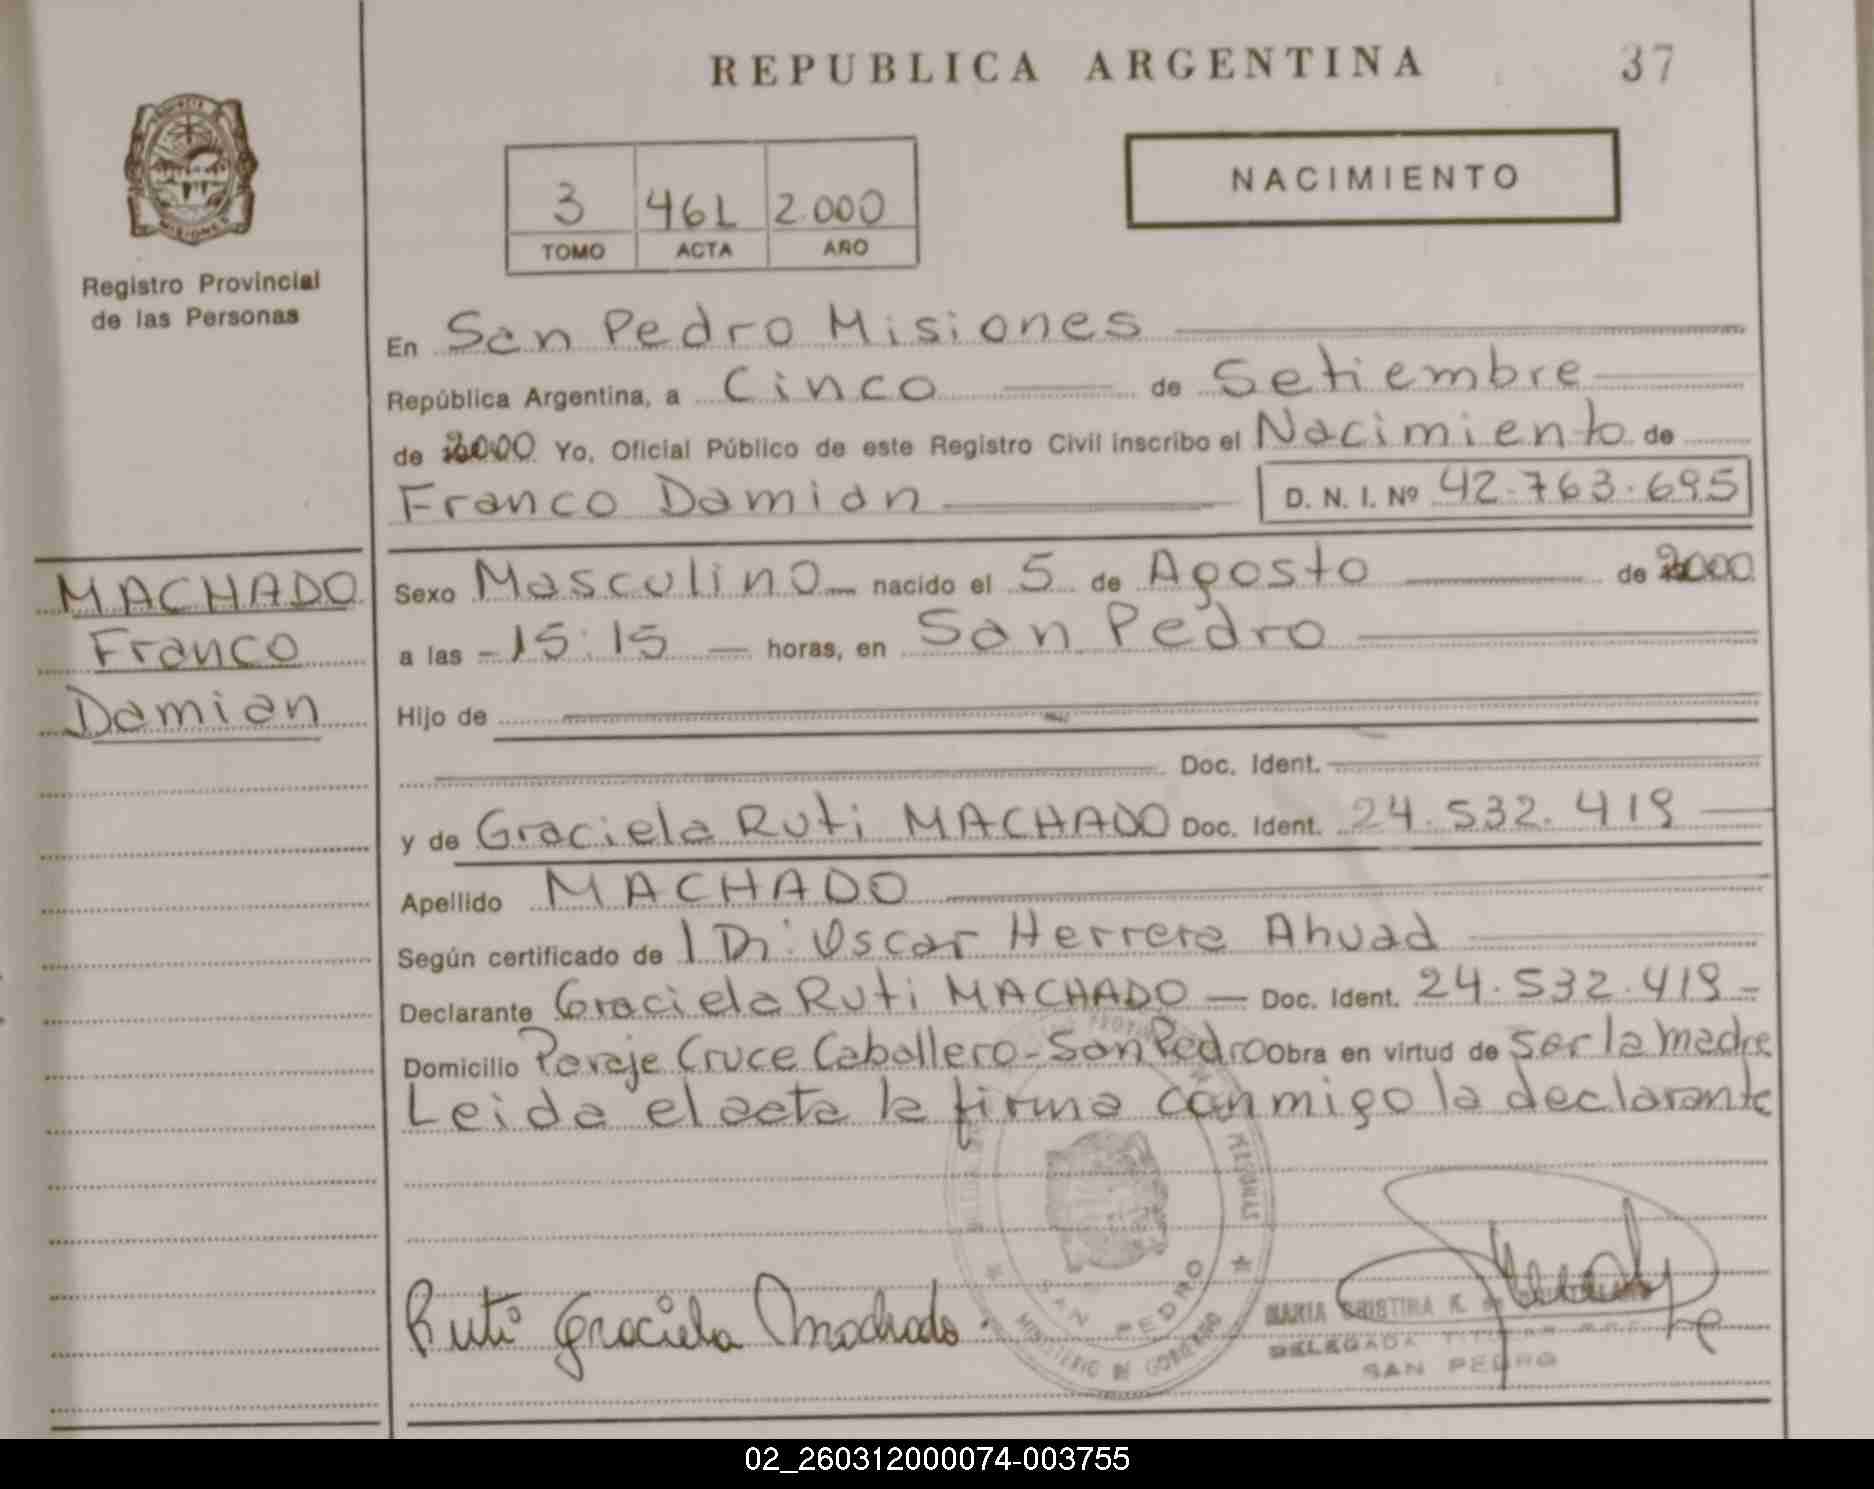 REPUBLICA ARGENTINA
37
NACIMIENTO
3 46L 2.000
TOMO ACTA AÑO
Registro Provincial
de las Personas
En San Pedro Misiones
República Argentina, a Cinco de Setiembre
de 2000 Yo, Oficial Público de este Registro Civil inscribo el Nacimiento de
Franco Damian D. N. I. Nº 42.763.695
MACHADO
Franco
Damian
Sexo Masculino nacido el 5 de Agosto de 2000
a las - 15:15 — horas, en San Pedro
Hijo de
Doc. Ident.
y de Graciela Ruti MACHADO Doc. Ident. 24.532.419
Apellido MACHADO
Según certificado de Dr. Oscar Herrera Ahuad
Declarante Graciela Ruti MACHADO — Doc. Ident. 24.532.419 -
Domicilio Paraje Cruce Caballero - San Pedro Obra en virtud de ser la madre
Leida el acta la firma conmigo la declarante
Ruti Graciela Machado
SAN PEDRO
MINISTERIO DE GOBIERNO
MARIA CRISTINA K. de
DELEGADA TITULAR
SAN PEDRO
02_260312000074-003755